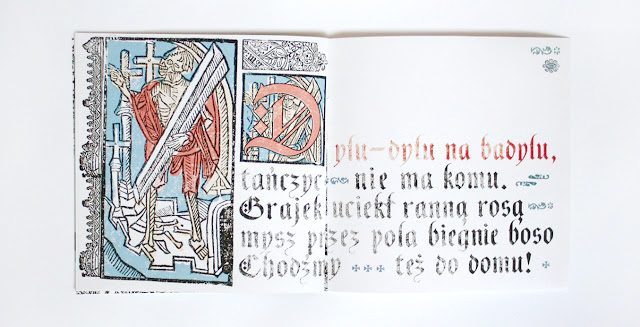 Dylu-dylu na badylu,
tańczyć nie ma komu.
Grajek uciekł ranną rosą
mysz przez pola biegnie boso
Chodźmy też do domu!